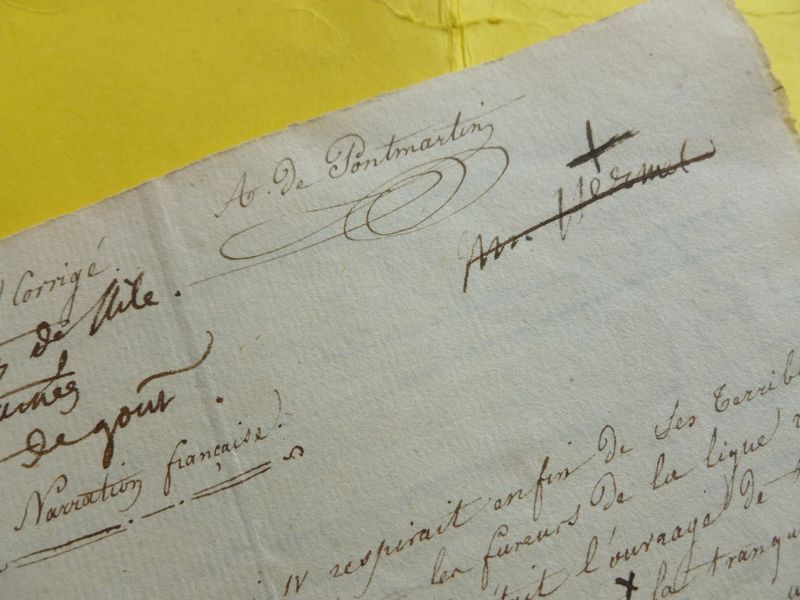 A. de Pontmartin
Corrigé.
de stile.
de goût.
Narration française.
IV respirait enfin de ses terrib
les fureurs de la ligue
l'ouvrage de
la tranqu